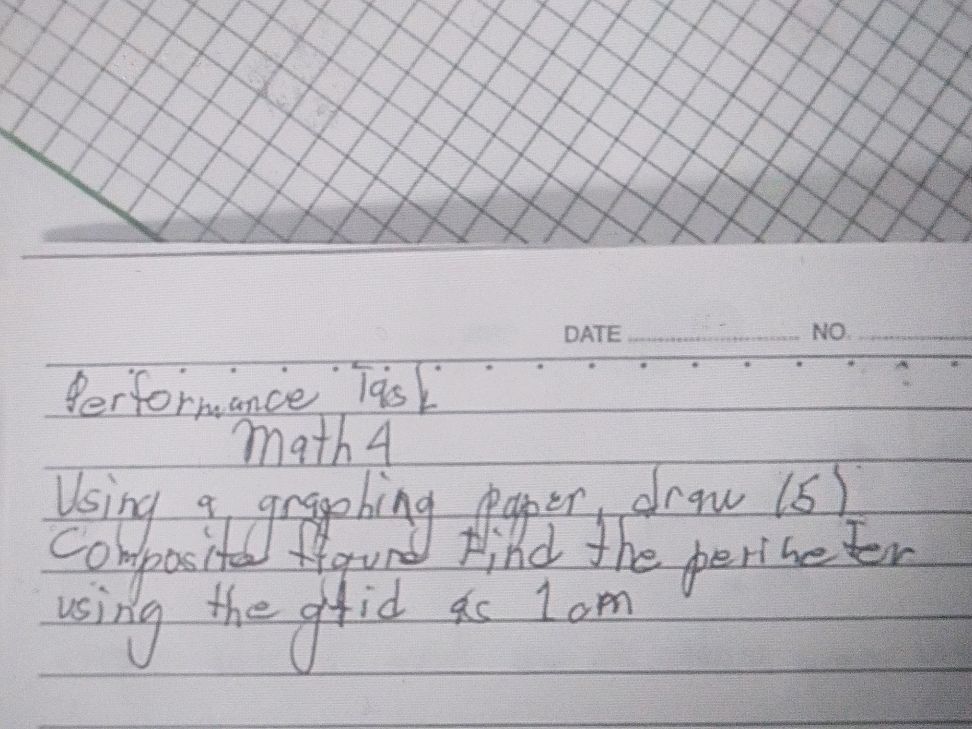 DATE NO.
Performance Task
Math 4
Using a graphing paper, draw (5)
Composite figure Find the perimeter
using the grid as 1 cm